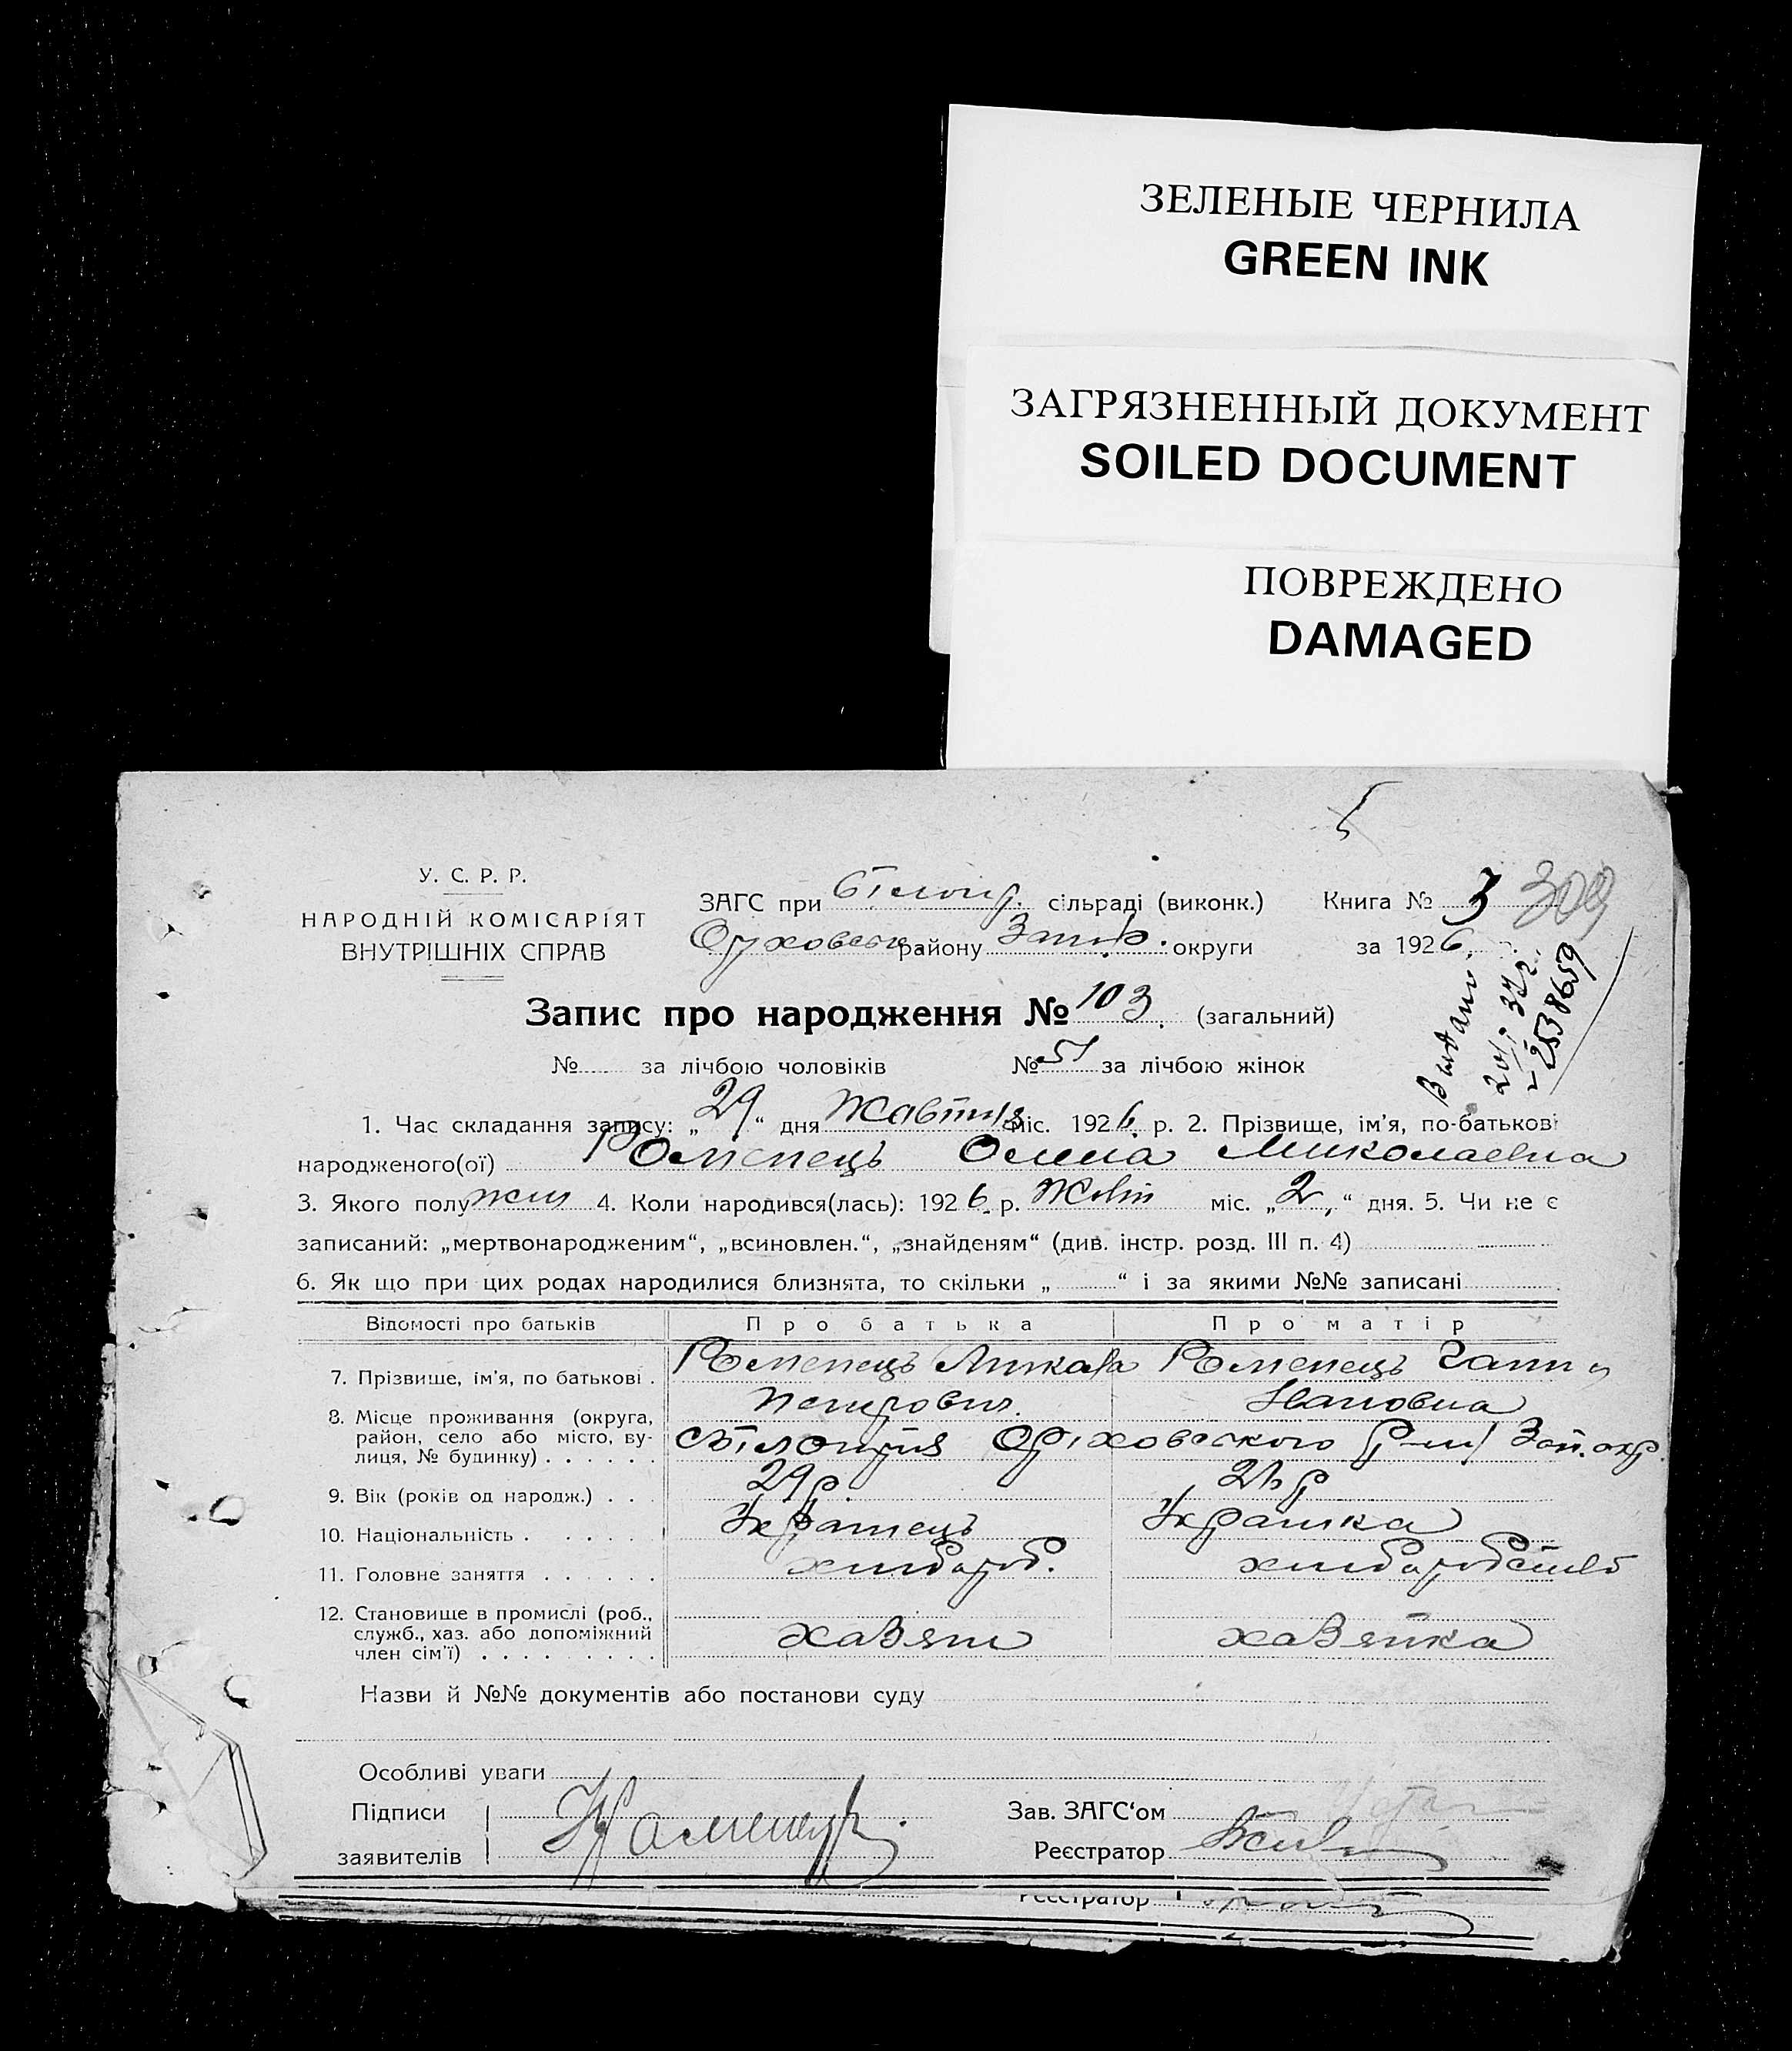 ЗЕЛЕНЫЕ ЧЕРНИЛА
GREEN INK
ЗАГРЯЗНЕННЫЙ ДОКУМЕНТ
SOILED DOCUMENT
ПОВРЕЖДЕНО
DAMAGED
5
У. С. Р. Р.
НАРОДНІЙ КОМІСАРІЯТ
ВНУТРІШНІХ СПРАВ
ЗАГС при сільраді (виконк.) Книга № 3 309
району Запор. округи за 1926
Запис про народження № 103. (загальний)
№ за лічбою чоловіків № 51 за лічбою жінок
1. Час складання запису: „29“ дня Жовтня міс. 1926. р. 2. Прізвище, ім'я, по-батькові
народженого(ої) Роменець Олина Миколаевна
3. Якого полу жін 4. Коли народився(лась): 1926. р. Жовт міс. „2“ дня. 5. Чи не є
записаний: „мертвонародженим“, „всиновлен.“, „знайденям“ (див. інстр. розд. III п. 4)
6. Як що при цих родах народилися близнята, то скільки „ “ і за якими №№ записані
Відомості про батьків Про батька Про матір
7. Прізвище, ім'я, по батькові . Роменець Микола Роменець Ганна
Петрович. Ивановна
8. Місце проживання (округа,
район, село або місто, ву-
лиця, № будинку) . . . . . . Оріховского р-ну Зап. окр.
9. Вік (років од народж.) . . . 29 р. р
10. Національність . . . . . Українець Українка
11. Головне заняття . . . . . . хлібороб. хлібороб
12. Становище в промислі (роб.,
служб., хаз. або допоміжний
член сім'ї) . . . . . . . . . хазяін хазяйка
Назви й №№ документів або постанови суду
Особливі уваги
Підписи Зав. ЗАГС'ом
заявителів Реєстратор
Реєстратор